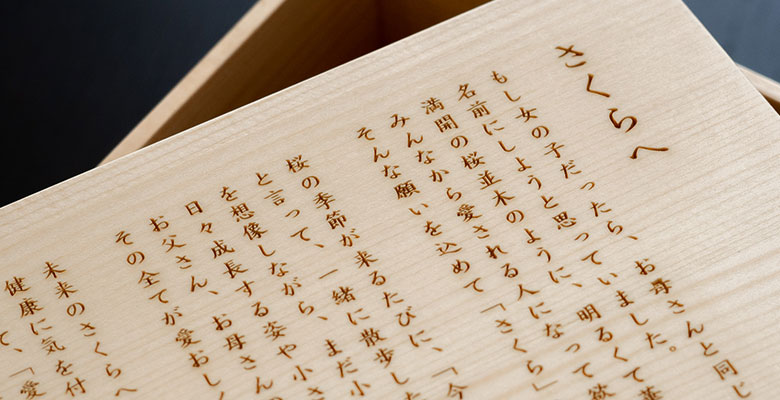 さくらへ
もし女の子だったら、お母さんと同じ
名前にしようと思っていました。
満開の桜並木のように、明るくて華
みんなから愛される人になって欲
そんな願いを込めて「さくら」
桜の季節が来るたびに、「今
と言って、一緒に散歩した
を想像しながら、まだ小
日々成長する姿や小さ
お父さん、お母さんの
その全てが愛おしく
未来のさくらへ
健康に気を付
て、「愛